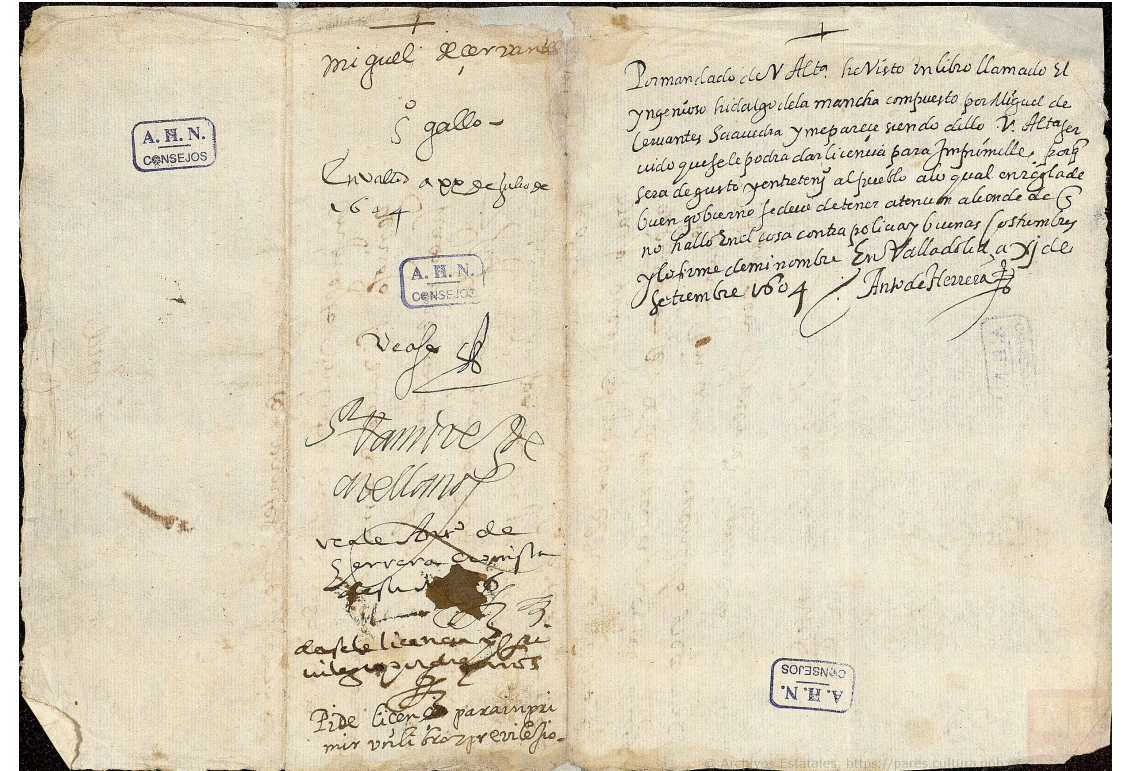 miguel de cervantes
S gallo
En Valld a xx de Julio de
1604
A. H. N.
CONSEJOS
A. H. N.
CONSEJOS
Vease
Ramirez de
arellano
veale Anto de
Herrera cronista
de su
dasele licencia y pri
vilegio por diez años
Pide licencia para inpri
mir un libro y previlesio
Por mandado de V Alta he visto un libro llamado El
yngenioso hidalgo de la mancha compuesto por Miguel de
Cervantes Saavedra y me parece siendo dello V. Alta ser
uido que se le podra dar licencia para Imprimille, porq
sera de gusto y entretenimto al pueblo a lo qual en regla de
buen gobierno se deue de tener atencion aliende de q
no hallo En el cosa contra policia y buenas costumbres
y lo firme de mi nombre En Valladolid a XI de
Setiembre 1604 Anto de Herrera
A. H. N.
A. H. N.
CONSEJOS
© Archivos Estatales, https://pares.cultura.gob